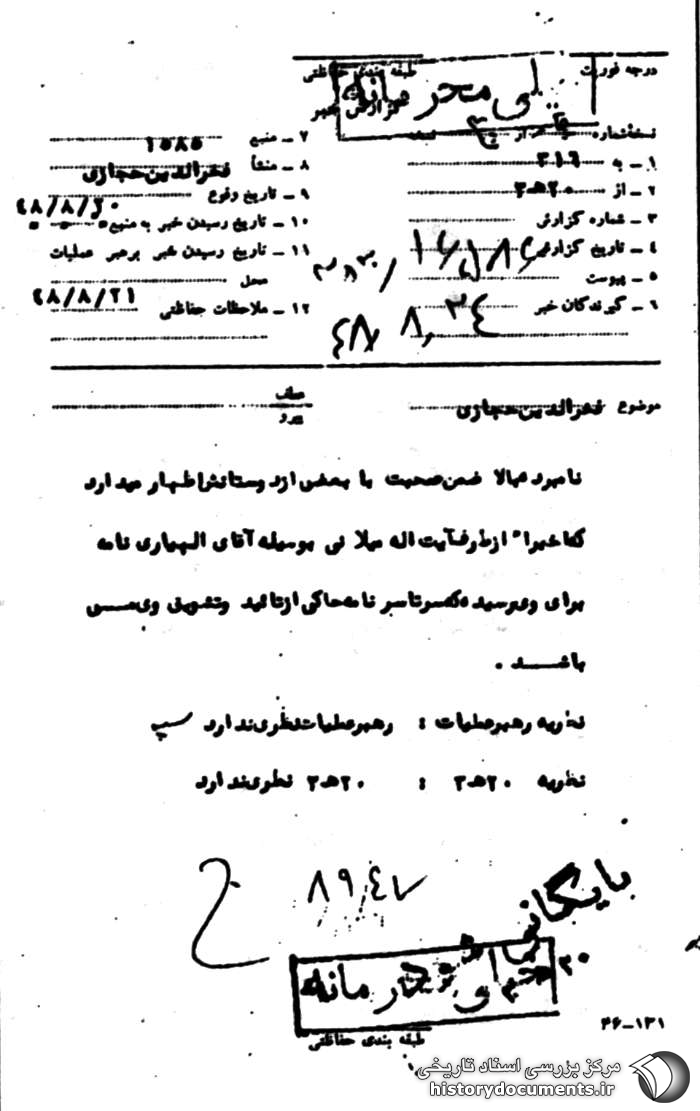 درجه فوریت
طبقه بندی حفاظتی
خیلی محرمانه
گزارش خبر
نسخه شماره از نسخه
۱ ـ به ۳۱۶
۲ ـ از ۲۰هـ۳
۳ ـ شماره گزارش
۴ ـ تاریخ گزارش
۵ ـ پیوست
۶ ـ گیرندگان خبر
۴۸٫۸٫۲۴
۷ ـ منبع ۱۵۸۵
۸ ـ منشأ فخرالدین حجازی
۹ ـ تاریخ وقوع
۱۰ ـ تاریخ رسیدن خبر به منبع ۴۸/۸/۲۰
۱۱ ـ تاریخ رسیدن خبر برهبر عملیات
محل ۴۸/۸/۲۱
۱۲ ـ ملاحظات حفاظتی
موضوع فخرالدین حجازی
عطف
پیرو
نامبرده بالا ضمن صحبت با بعضی از دوستانش اظهار میدارد
که اخیرا" از طرف آیت اله میلانی بوسیله آقای الهیاری نامه
برای وی رسیده که سرتاسر نامه حاکی از تائید و تشویق وی مـی
باشـد .
نظریه رهبر عملیات : رهبر عملیات نظری ندارد
نظریه ۲۰هـ۳ : ۲۰هـ۳ نظری ندارد
بایگانی
خیلی محرمانه
طبقه بندی حفاظتی
۴۶-۱۳۱
مرکز بررسی اسناد تاریخی
historydocuments.ir